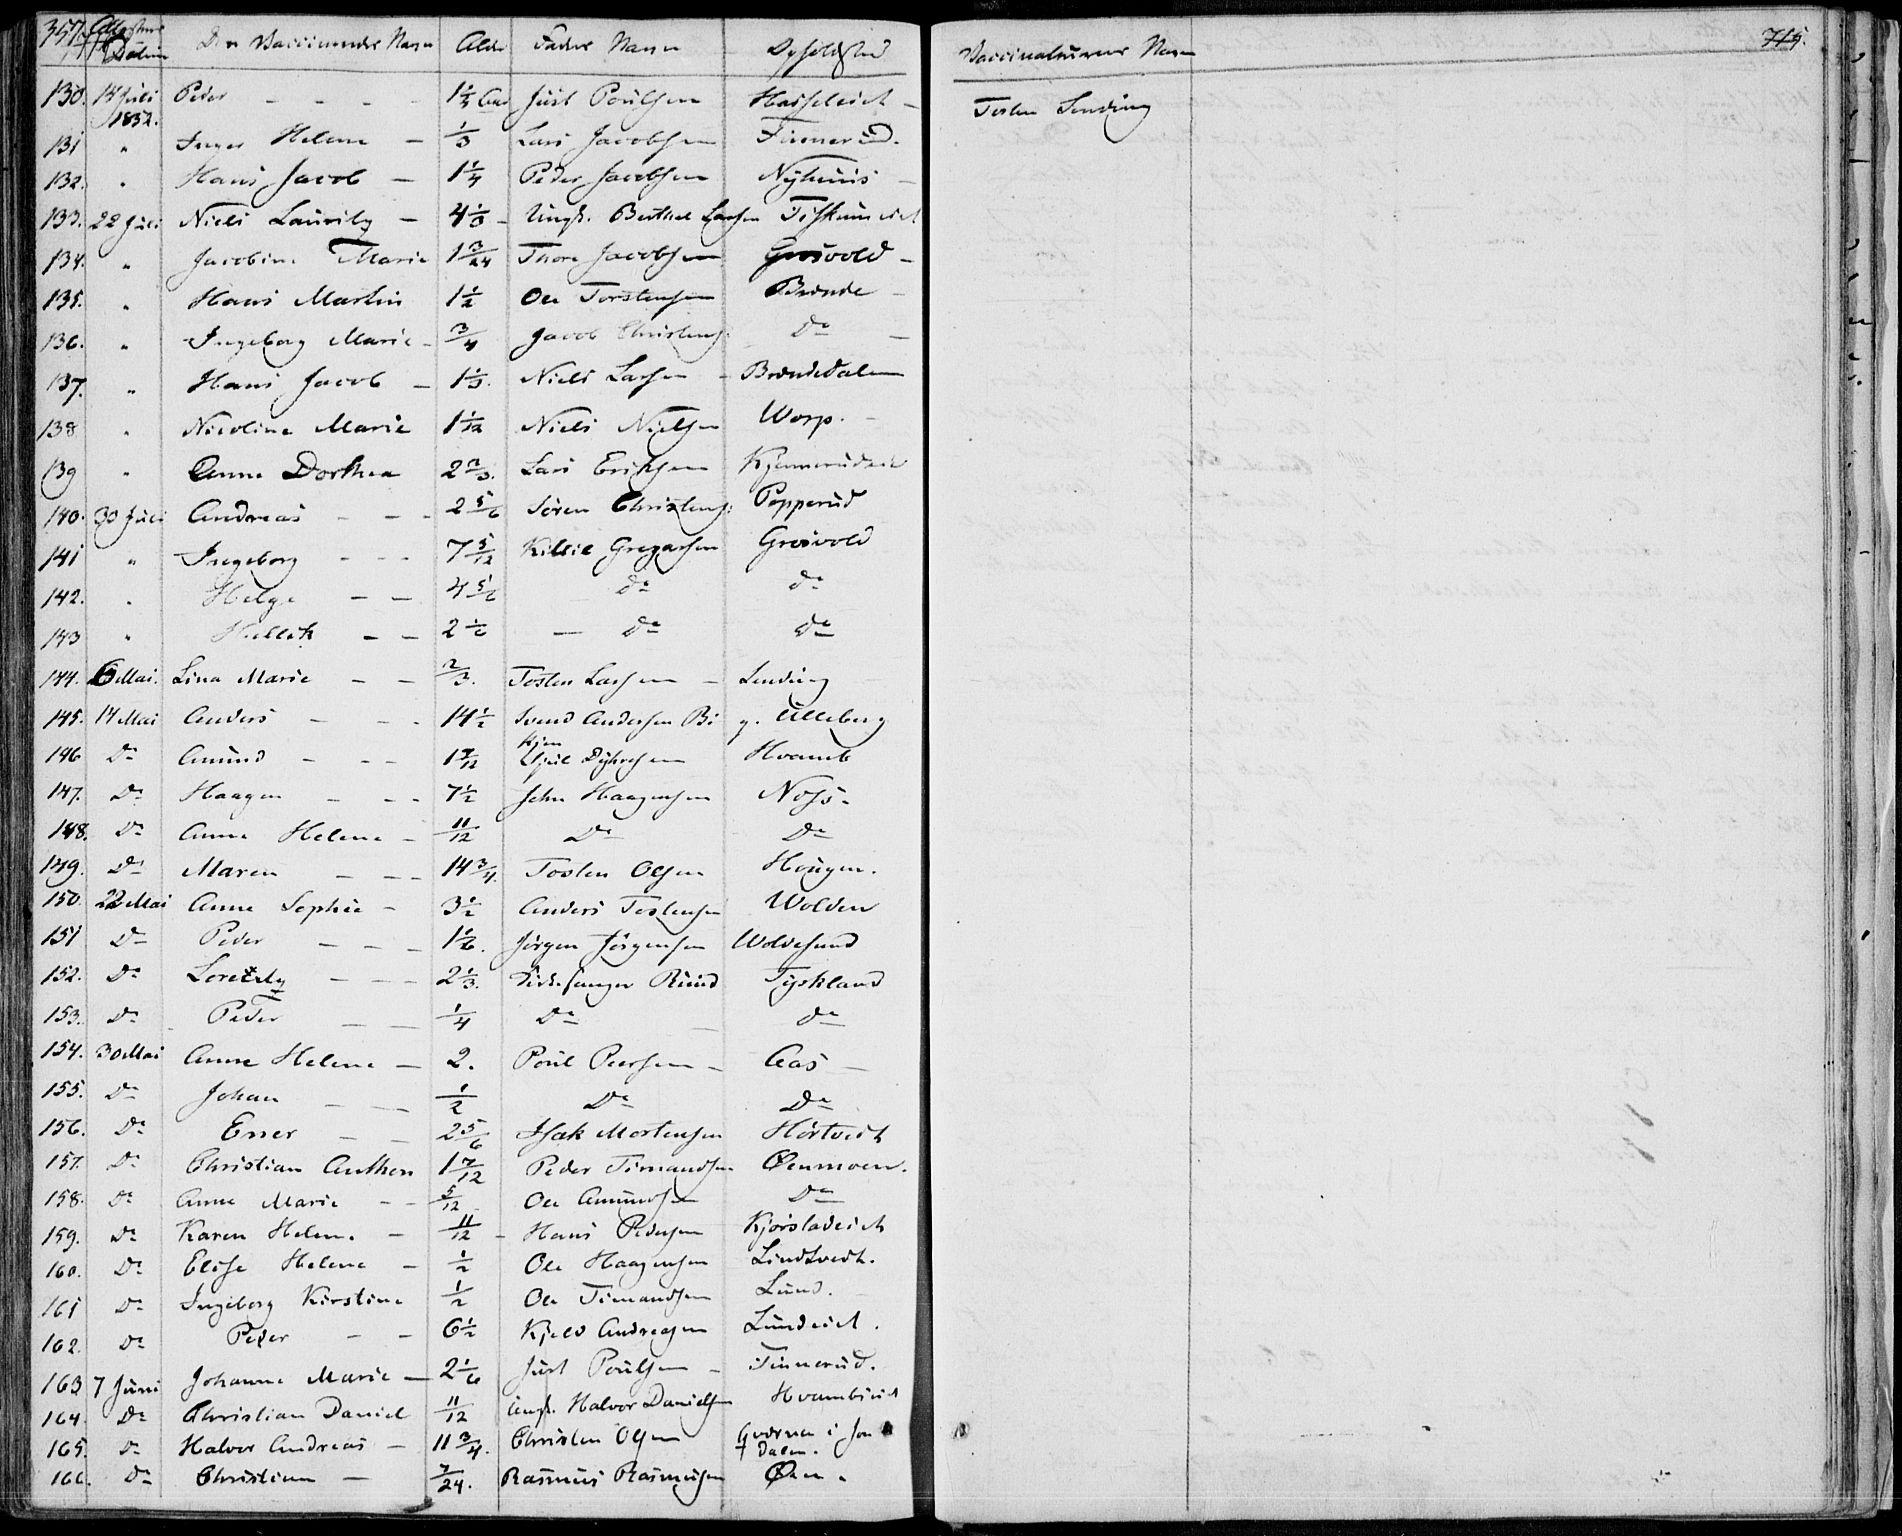 357. Attestens Datum Den Vaccineredes Navn Alder Faders Navn Opholdssted
Vaccinateurens Navn 715.
130. 14 Juli 1852. Peder - - - - 1 1/4 Aar Just Poulsen Hasseleiet -
Tosten Sending
131 " Inger Helene - 1/3 Lars Jacobsen Finnerud.
132. " Hans Jacob - 1 1/4 Peder Jacobsen Nyhuus -
133. 22 Juli Niels Lauritz - 4 1/3 - Ungk. Berthel Larsen
134. " Jacobine Marie 1 3/24 Thore Jacobsen Grosvold -
135. " Hans Martin 1 1/2 Ole Torstensen Brende -
136. " Ingeborg Marie - 3/4 Jacob Christens: Do -
137. " Hans Jacob - 1 1/3. Niels Larsen - Brendedalen
138 " Nicoline Marie 1 1/12 Niels Nielsen Worp. -
139 " Anne Dorthea 2 2/3. Lars Eriksen Kjennerudeie
140. 30 Juli Andreas - - - 2 5/6 Søren Christens: Popperud
141 " Ingeborg - - - 7 5/12 Killie Gregersen Grosvold
142. " Helge - - 4 5/6 do do
143 " Hellek - - 2 1/6 - Do Do
144. 6 Mai. Lina Marie - - 2/3. Tosten Larsen - Sending
145. 14 Mai Anders - - - 14 1/2 Svend Andersen Bi g. Ulleberg
146 Do Amund - - - 1 7/12 Dyhresen Hvamb
147. Do Haagen - - - 7 1/2 John Haagensen Noss.
148. Do Anne Helene - 11/12 Do Do
149. Do Maren - - - 14 3/4. Tosten Olsen Hougen.
150. 22 Mai Anne Sophie - 3 1/2 Anders Tostensen Wolden
151 Do Peder - - - 1 1/6. Jörgen Jörgensen Woldesund
152. Do Loretz - - - 2 1/3. Kirkesanger Ruud Tyskland
153. Do Peder - - 1/4 Do - do
154. 30 Mai Anne Helene - 2. Poul Peersen - Aas -
155. Do Johan - - 1/2 Do Do
156. Do Enner - - 2 5/6 Isak Mortensen Hörtvedt
157. Do Christian Anthon 1 7/12 Peder Timandsen Øenmoen.
158. Do Anne Marie - - 5/12 Ole Amundsen Do
159. Do Karen Helene - 11/12 - Hans Pedersen Kjörsladeiet
160. Do Elise Helene - 1/2 Ole Haagensen Lindtvedt.
161 Do Ingeborg Kirstine 1/2 Ole Timandsen Lund.
162. Do Peder - - 6 1/2 Kjeld Andreasen Lundeiet.
163 7 Juni Johanne Marie - 2 1/6 Just Poulsen - Finnerud.
164. Do Christian Daniel 11/12 Ungk. Halvor Danielsen Hvambeiet
165. Do Halvor Andreas - 11 3/4. Christen Olsen Qvernen i Jondalen.
166. Do Christian - 7/24. Rasmus Rasmusen Øen.